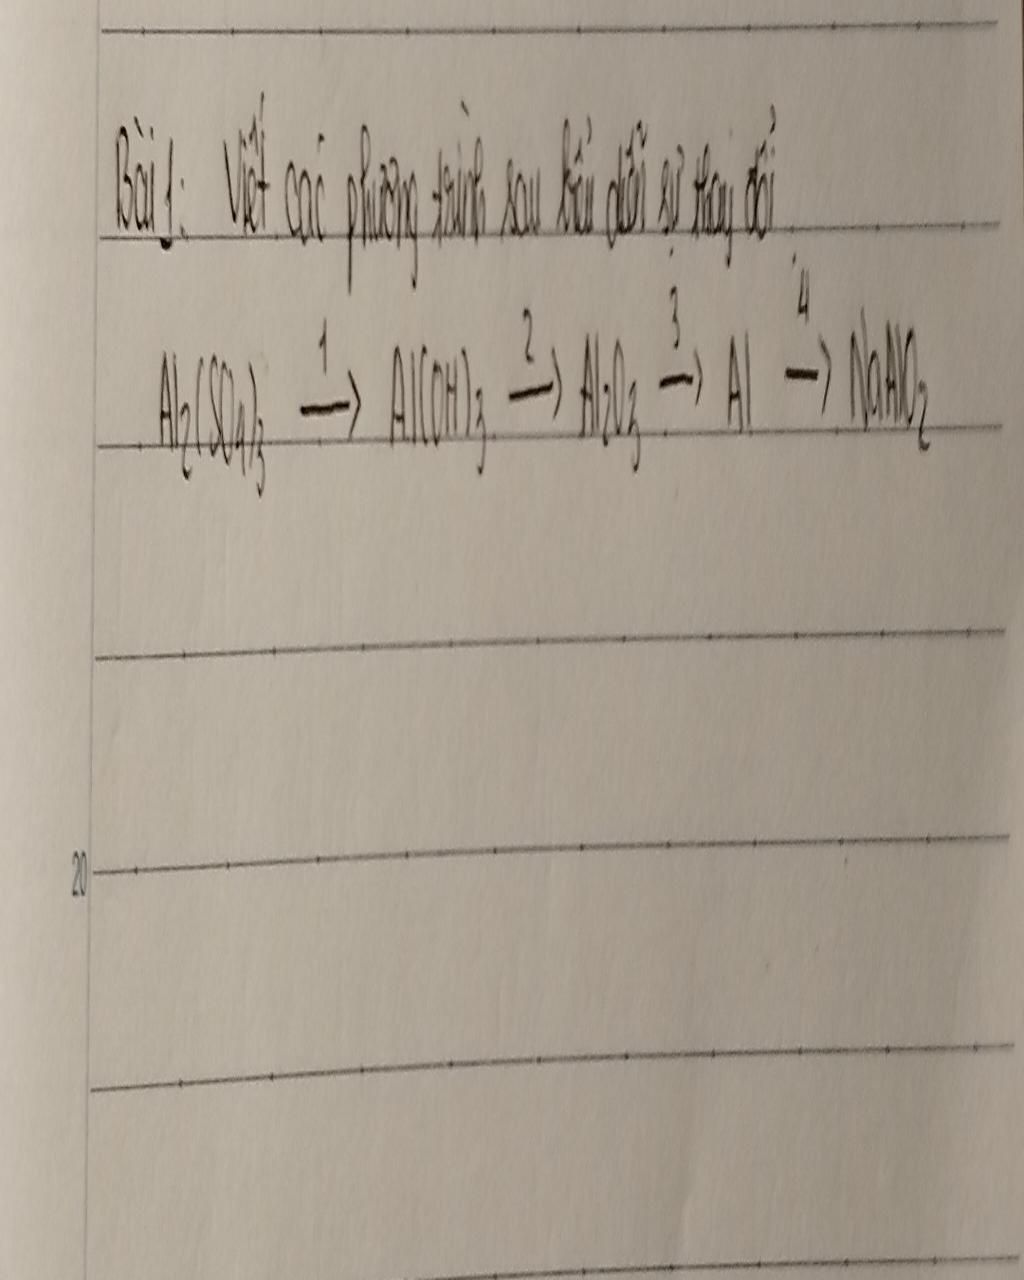 Bài 1: Viết các phương trình sau biểu diễn sự thay đổi
Al₂(SO₄)₃ —1→ Al(OH)₃ —2→ Al₂O₃ —3→ Al —4→ NaAlO₂
20